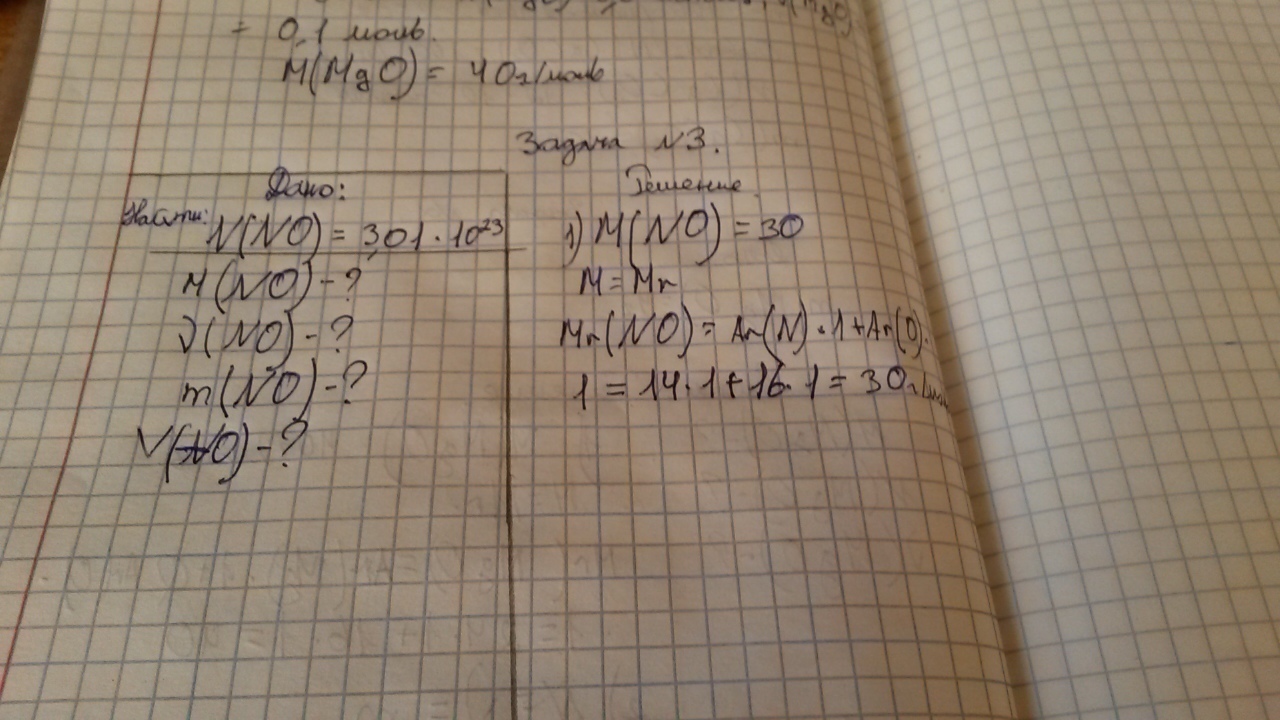 = 0,1 моль.
M(MgO) = 40г/моль
Задача N3.
Дано:
N(NO) = 3,01 · 10²³
M(NO) - ?
ν(NO) - ?
m(NO) - ?
V(NO) - ?
Решение
1) M(NO) = 30
M = Mr
Mr(NO) = Ar(N) · 1 + Ar(O) ·
1 = 14 · 1 + 16 · 1 = 30г/моль